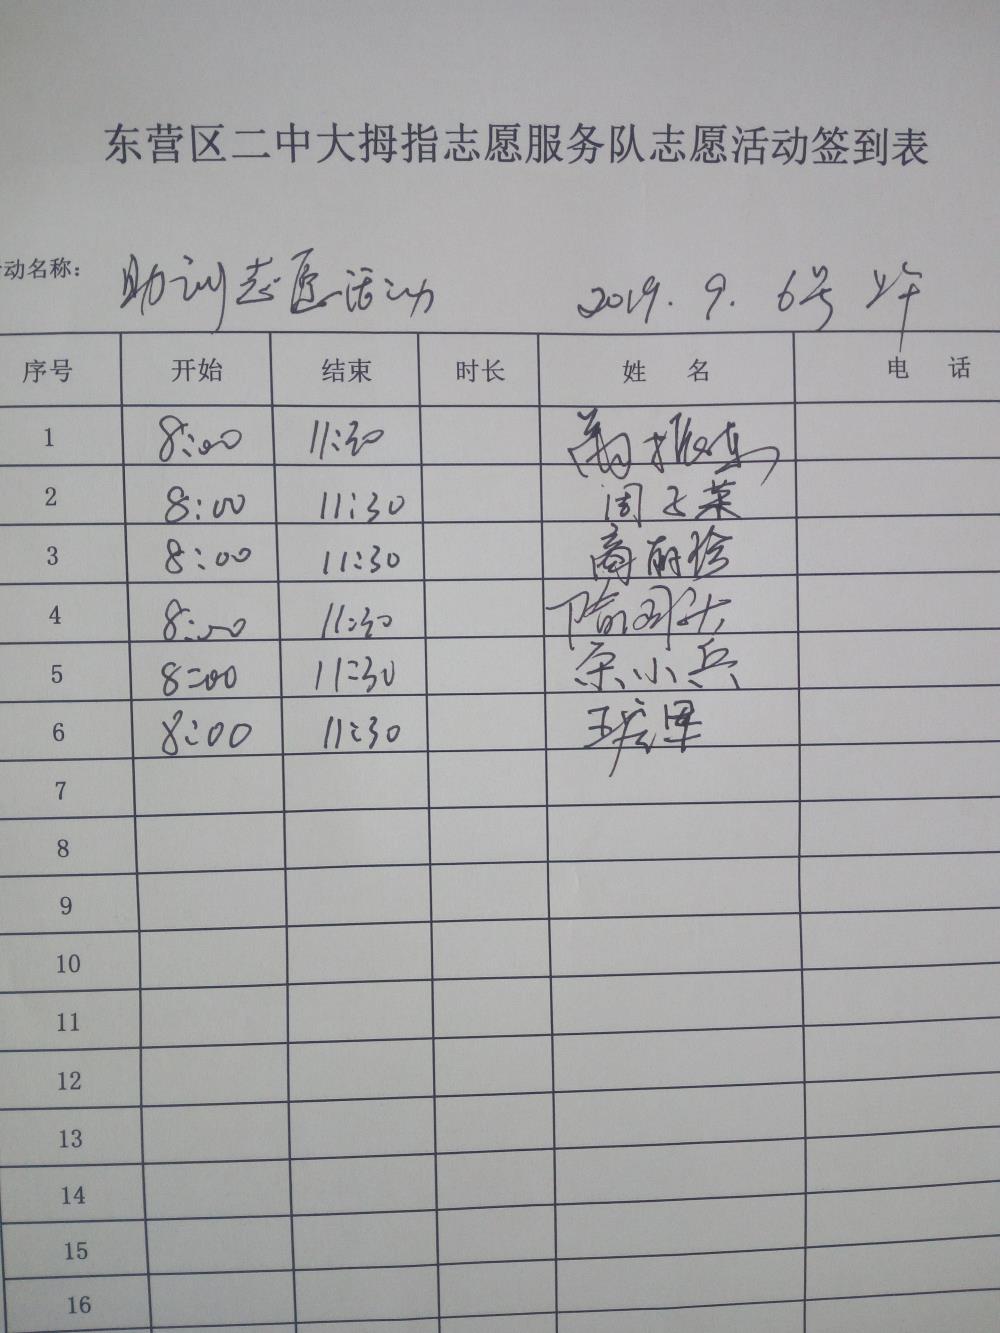 东营区二中大拇指志愿服务队志愿活动签到表
动名称： 助训志愿活动 2019.9.6号 上午
序号 开始 结束 时长 姓 名 电 话
1 8:00 11:30
2 8:00 11:30 周
3 8:00 11:30 商丽珍
4 8:00 11:30
5 8:00 11:30 宗小兵
6 8:00 11:30 王宏军
7
8
9
10
11
12
13
14
15
16